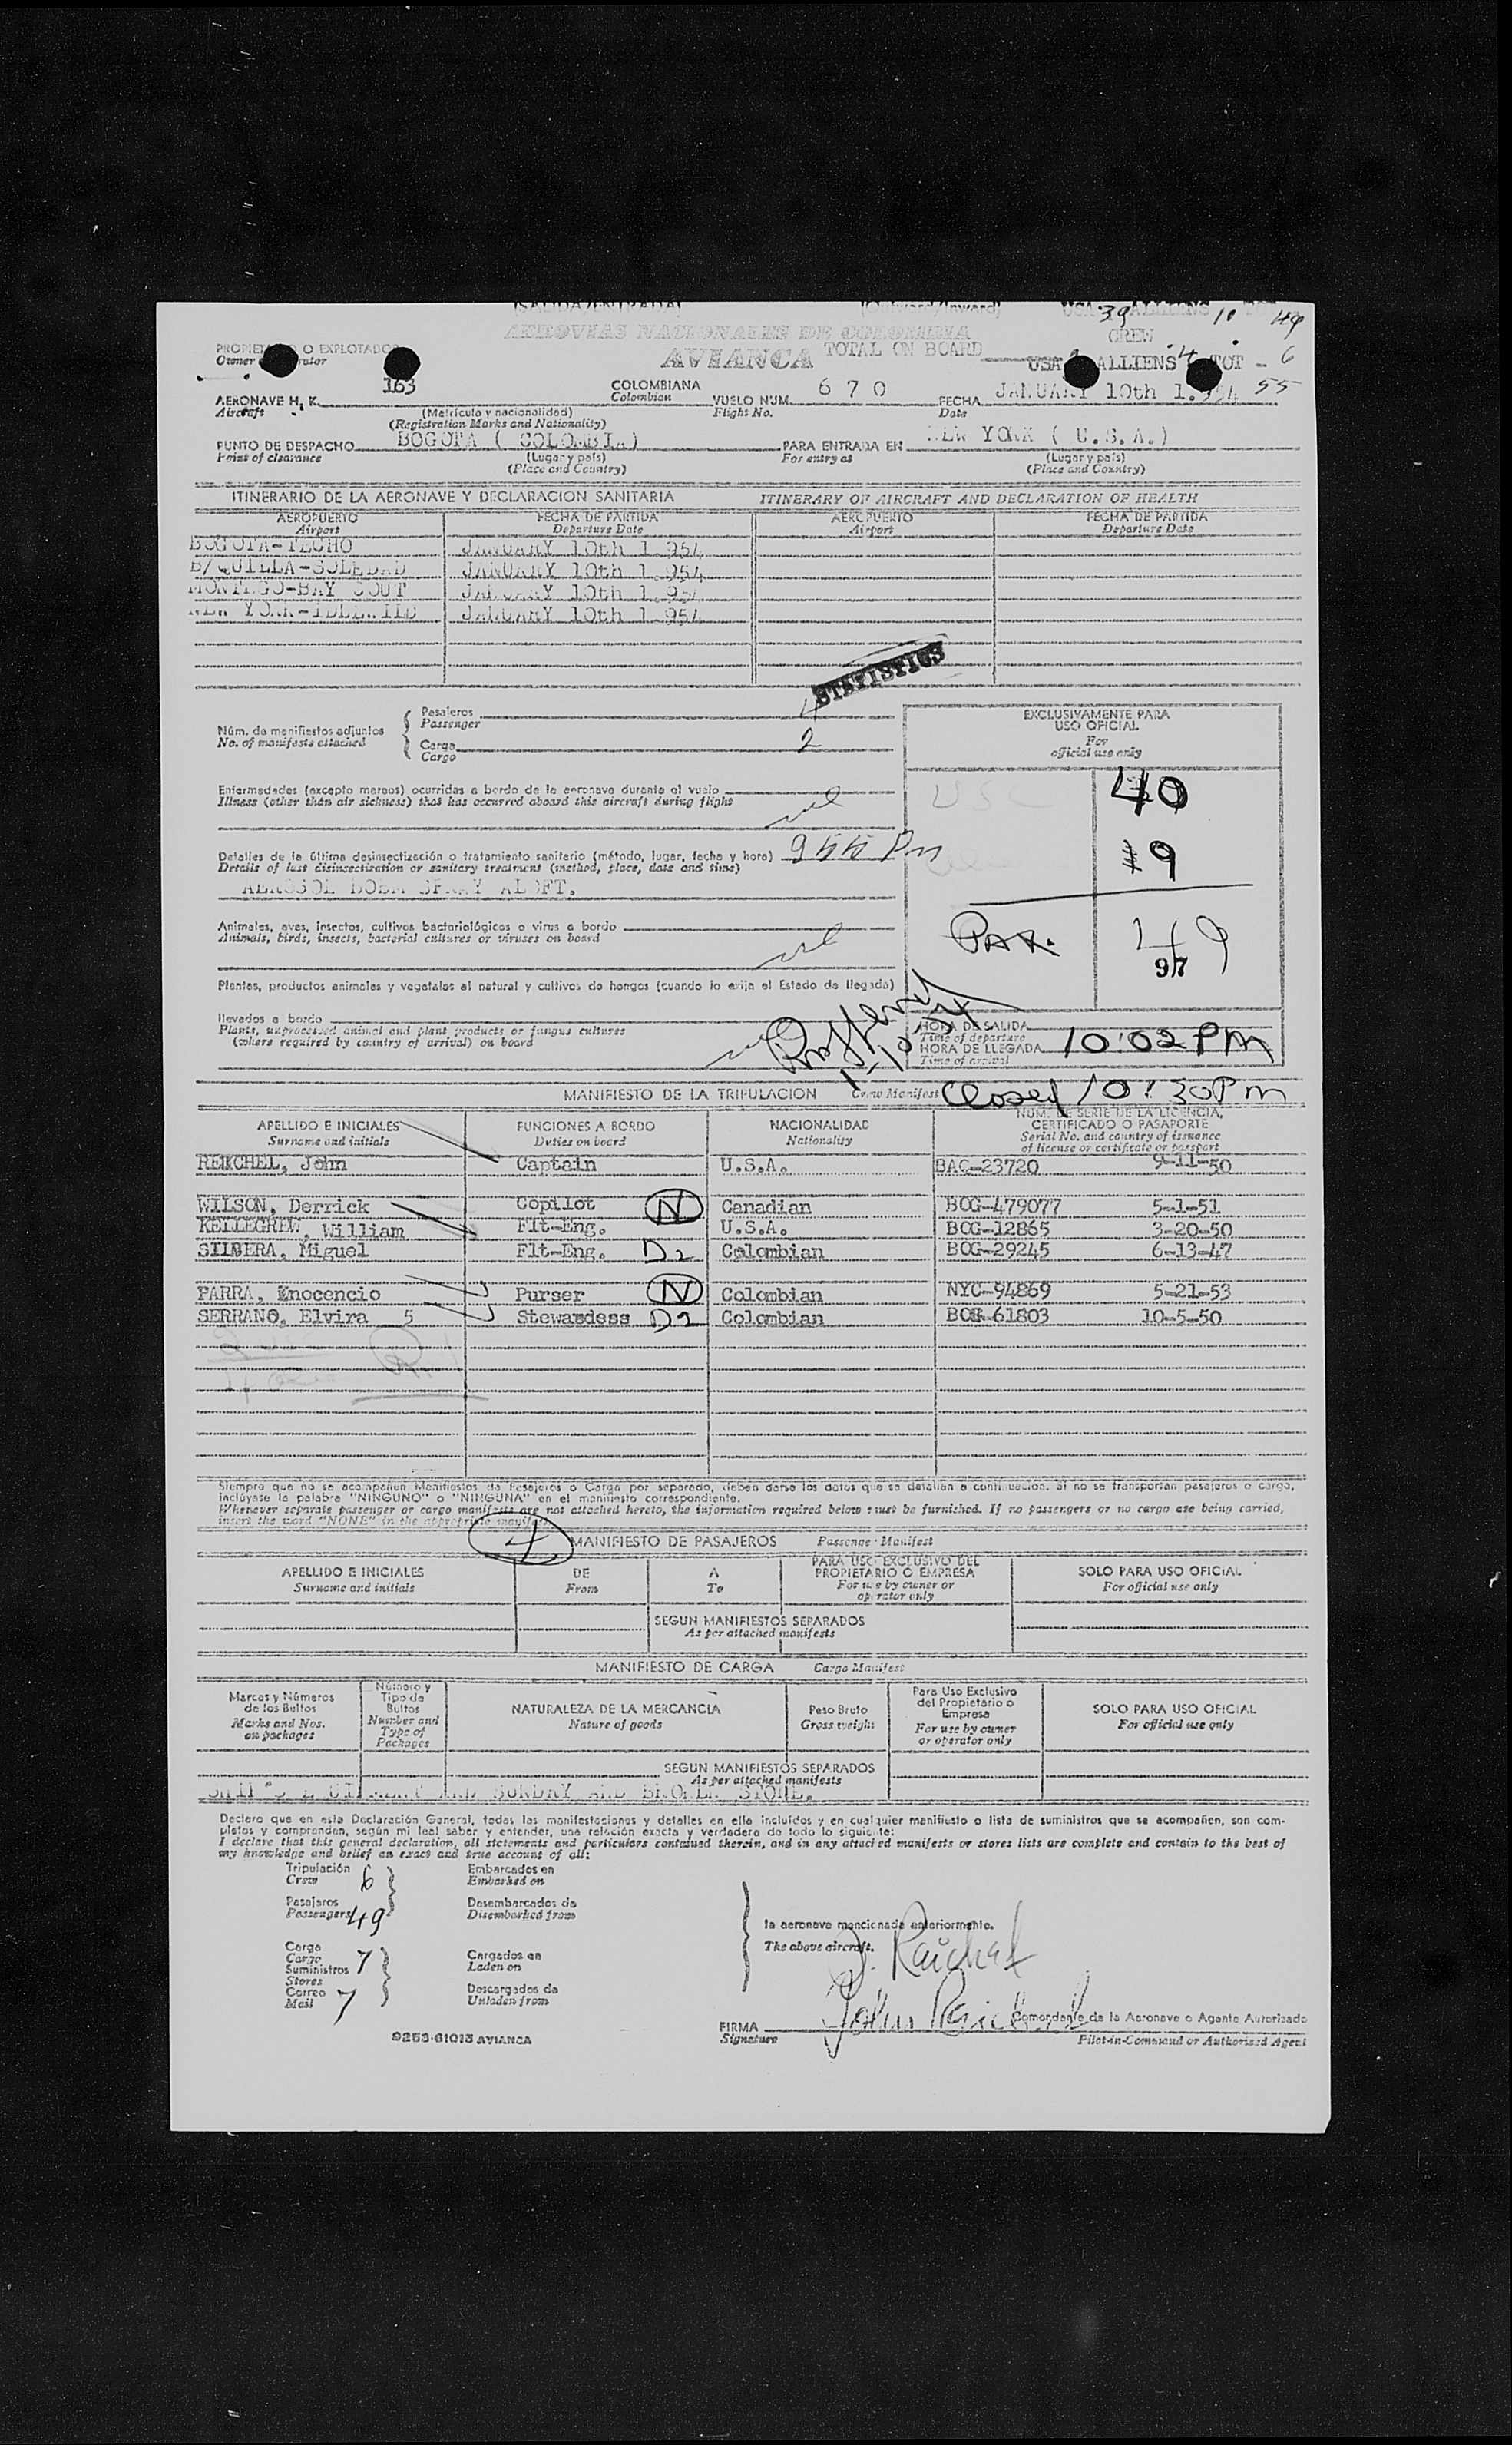 USA 39 ALLIENS 10 TOT 49
AEROVIAS NACIONALES DE COLOMBIA
CREW
PROPIETARIO O EXPLOTADOR
AVIANCA TOTAL ON BOARD
USA ALLIENS 4 TOT - 6
Owner
163
COLOMBIANA
Colombian
670
JANUARY 10th 1.954 55
AERONAVE H. K.
VUELO NUM.
FECHA
Aircraft
(Matrícula y nacionalidad)
Flight No.
Date
(Registration Marks and Nationality)
BOGOTA ( COLOMBIA)
NEW YORK ( U.S.A.)
PUNTO DE DESPACHO
PARA ENTRADA EN
Point of clearance
(Lugar y país)
For entry at
(Lugar y país)
(Place and Country)
(Place and Country)
ITINERARIO DE LA AERONAVE Y DECLARACION SANITARIA ITINERARY OF AIRCRAFT AND DECLARATION OF HEALTH
AEROPUERTO FECHA DE PARTIDA AEROPUERTO FECHA DE PARTIDA
Airport Departure Date Airport Departure Date
BOGOTA-TECHO JANUARY 10th 1.954
B/QUILLA-SOLEDAD JANUARY 10th 1.954
MONTEGO-BAY JANUARY 10th 1.954
NEW YORK-IDLEWILD JANUARY 10th 1.954
STATISTICS
Núm. de manifiestos adjuntos
No. of manifests attached
Pasajeros
Passenger 4
Carga
Cargo 2
EXCLUSIVAMENTE PARA
USO OFICIAL
For
official use only
USC 40
9
PAR. 49
97
Enfermedades (excepto mareos) ocurridas a bordo de la aeronave durante el vuelo
Illness (other than air sickness) that has occurred aboard this aircraft during flight
nil
Detalles de la última desinsectización o tratamiento sanitario (método, lugar, fecha y hora) 955 Pm
Details of last disinsectization or sanitary treatment (method, place, date and time)
AEROSOL BOMB SPRAY ALOFT.
Animales, aves, insectos, cultivos bacteriológicos o virus a bordo
Animals, birds, insects, bacterial cultures or viruses on board
nil
Plantas, productos animales y vegetales al natural y cultivos de hongos (cuando lo exija el Estado de llegada)
llevados a bordo
Plants, unprocessed animal and plant products or fungus cultures
(where required by country of arrival) on board
HORA DE SALIDA
Time of departure
HORA DE LLEGADA 10:02 PM
Time of arrival
MANIFIESTO DE LA TRIPULACION Crew Manifest Closed 10:30 Pm
APELLIDO E INICIALES FUNCIONES A BORDO NACIONALIDAD NUM. DE SERIE DE LA LICENCIA,
CERTIFICADO O PASAPORTE
Surname and initials Duties on board Nationality Serial No. and country of issuance
of license or certificate or passport
REICHEL, John Captain U.S.A. BAC-23720 9-11-50
WILSON, Derrick Copilot N Canadian BOG-479077 5-1-51
KELLEGREW, William Flt-Eng. U.S.A. BOG-12865 3-20-50
SILBERA, Miguel Flt-Eng. D2 Colombian BOG-29245 6-13-47
PARRA, Inocencio Purser N Colombian NYC-94869 5-21-53
SERRANO, Elvira 5 Stewardess D2 Colombian BOG-61803 10-5-50
Siempre que no se acompañen Manifiestos de Pasajeros o Carga por separado, deben darse los datos que se detallan a continuación. Si no se transportan pasajeros o carga,
inclúyase la palabra "NINGUNO" o "NINGUNA" en el manifiesto correspondiente.
Whenever separate passenger or cargo manifests are not attached hereto, the information required below must be furnished. If no passengers or no cargo are being carried,
insert the word "NONE" in the appropriate manifest.
4 MANIFIESTO DE PASAJEROS Passenge Manifest
APELLIDO E INICIALES DE A PARA USO EXCLUSIVO DEL
PROPIETARIO O EMPRESA SOLO PARA USO OFICIAL
Surname and initials From To For use by owner or
operator only For official use only
SEGUN MANIFIESTOS SEPARADOS
As per attached manifests
MANIFIESTO DE CARGA Cargo Manifest
Marcas y Números
de los Bultos
Marks and Nos.
on packages
Número y
Tipo de
Bultos
Number and
Type of
Packages
NATURALEZA DE LA MERCANCIA
Nature of goods
Peso Bruto
Gross weight
Para Uso Exclusivo
del Propietario o
Empresa
For use by owner
or operator only
SOLO PARA USO OFICIAL
For official use only
SEGUN MANIFIESTOS SEPARADOS
As per attached manifests
AND SUNDAY AND BROKEN STONE.
Declaro que en esta Declaración General, todas las manifestaciones y detalles en ella incluídos y en cualquier manifiesto o lista de suministros que se acompañen, son com-
pletos y comprenden, según mi leal saber y entender, una relación exacta y verdadera de todo lo siguiente:
I declare that this general declaration, all statements and particulars contained therein, and in any attached manifests or stores lists are complete and contain to the best of
my knowledge and belief an exact and true account of all:
Tripulación
Crew 6
Embarcados en
Embarked on
Pasajeros
Passengers 49
Desembarcados de
Disembarked from
la aeronave mencionada anteriormente.
The above aircraft.
J. Reichel
Carga
Cargo
Suministros 7
Stores
Correo
Mail 7
Cargados en
Laden on
Descargados de
Unladen from
John Reichel
FIRMA
Signature
Comandante de la Aeronave o Agente Autorizado
Pilot-in-Command or Authorized Agent
9253-61015 AVIANCA